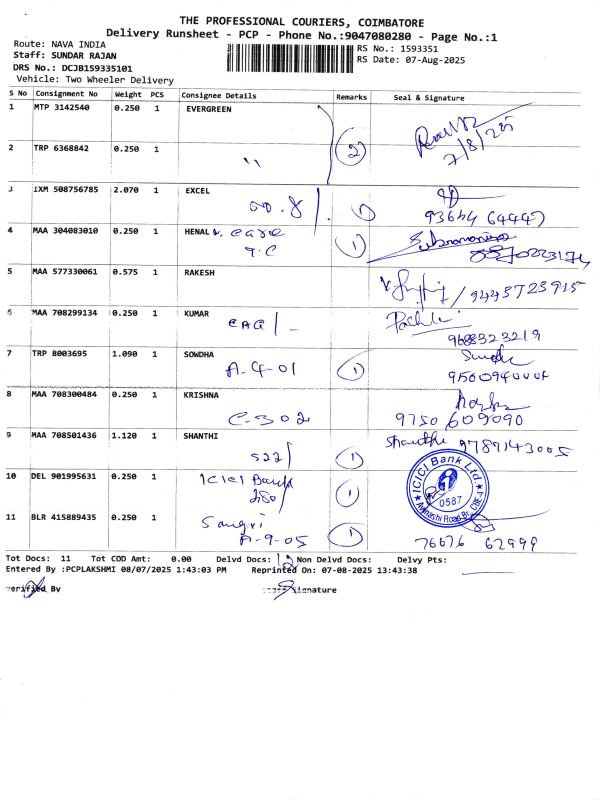 THE PROFESSIONAL COURIERS, COIMBATORE
Delivery Runsheet - PCP - Phone No.:9047080280 - Page No.:1
Route: NAVA INDIA
Staff: SUNDAR RAJAN
DRS No.: DCJB159335101
Vehicle: Two Wheeler Delivery
RS No.: 1593351
RS Date: 07-Aug-2025
S No Consignment No Weight PCS Consignee Details Remarks Seal & Signature
1 MTP 3142540 0.250 1 EVERGREEN
7/8/25
2 TRP 6368842 0.250 1 " 2
3 IXM 508756785 2.070 1 EXCEL
NO. 8/. 1 93644 64447
4 MAA 304083010 0.250 1 HENAL
1
5 MAA 577330061 0.575 1 RAKESH
9443723915
6 MAA 708299134 0.250 1 KUMAR
9688323219
7 TRP 8003695 1.090 1 SOWDHA
A-4-01 1
8 MAA 708300484 0.250 1 KRISHNA
C-302 9750 609090
9 MAA 708501436 1.120 1 SHANTHI Shanthi 9789143005
522/ 1
10 DEL 901995631 0.250 1 ICICI Bank
1
ICICI Bank Ltd
0587
Avinashi Road Br. CBE-4
11 BLR 415889435 0.250 1
A-9-05 1 76676 62999
Tot Docs: 11 Tot COD Amt: 0.00 Delvd Docs: 12 Non Delvd Docs: Delvy Pts:
Entered By :PCPLAKSHMI 08/07/2025 1:43:03 PM Reprinted On: 07-08-2025 13:43:38
Verified By Staff Signature